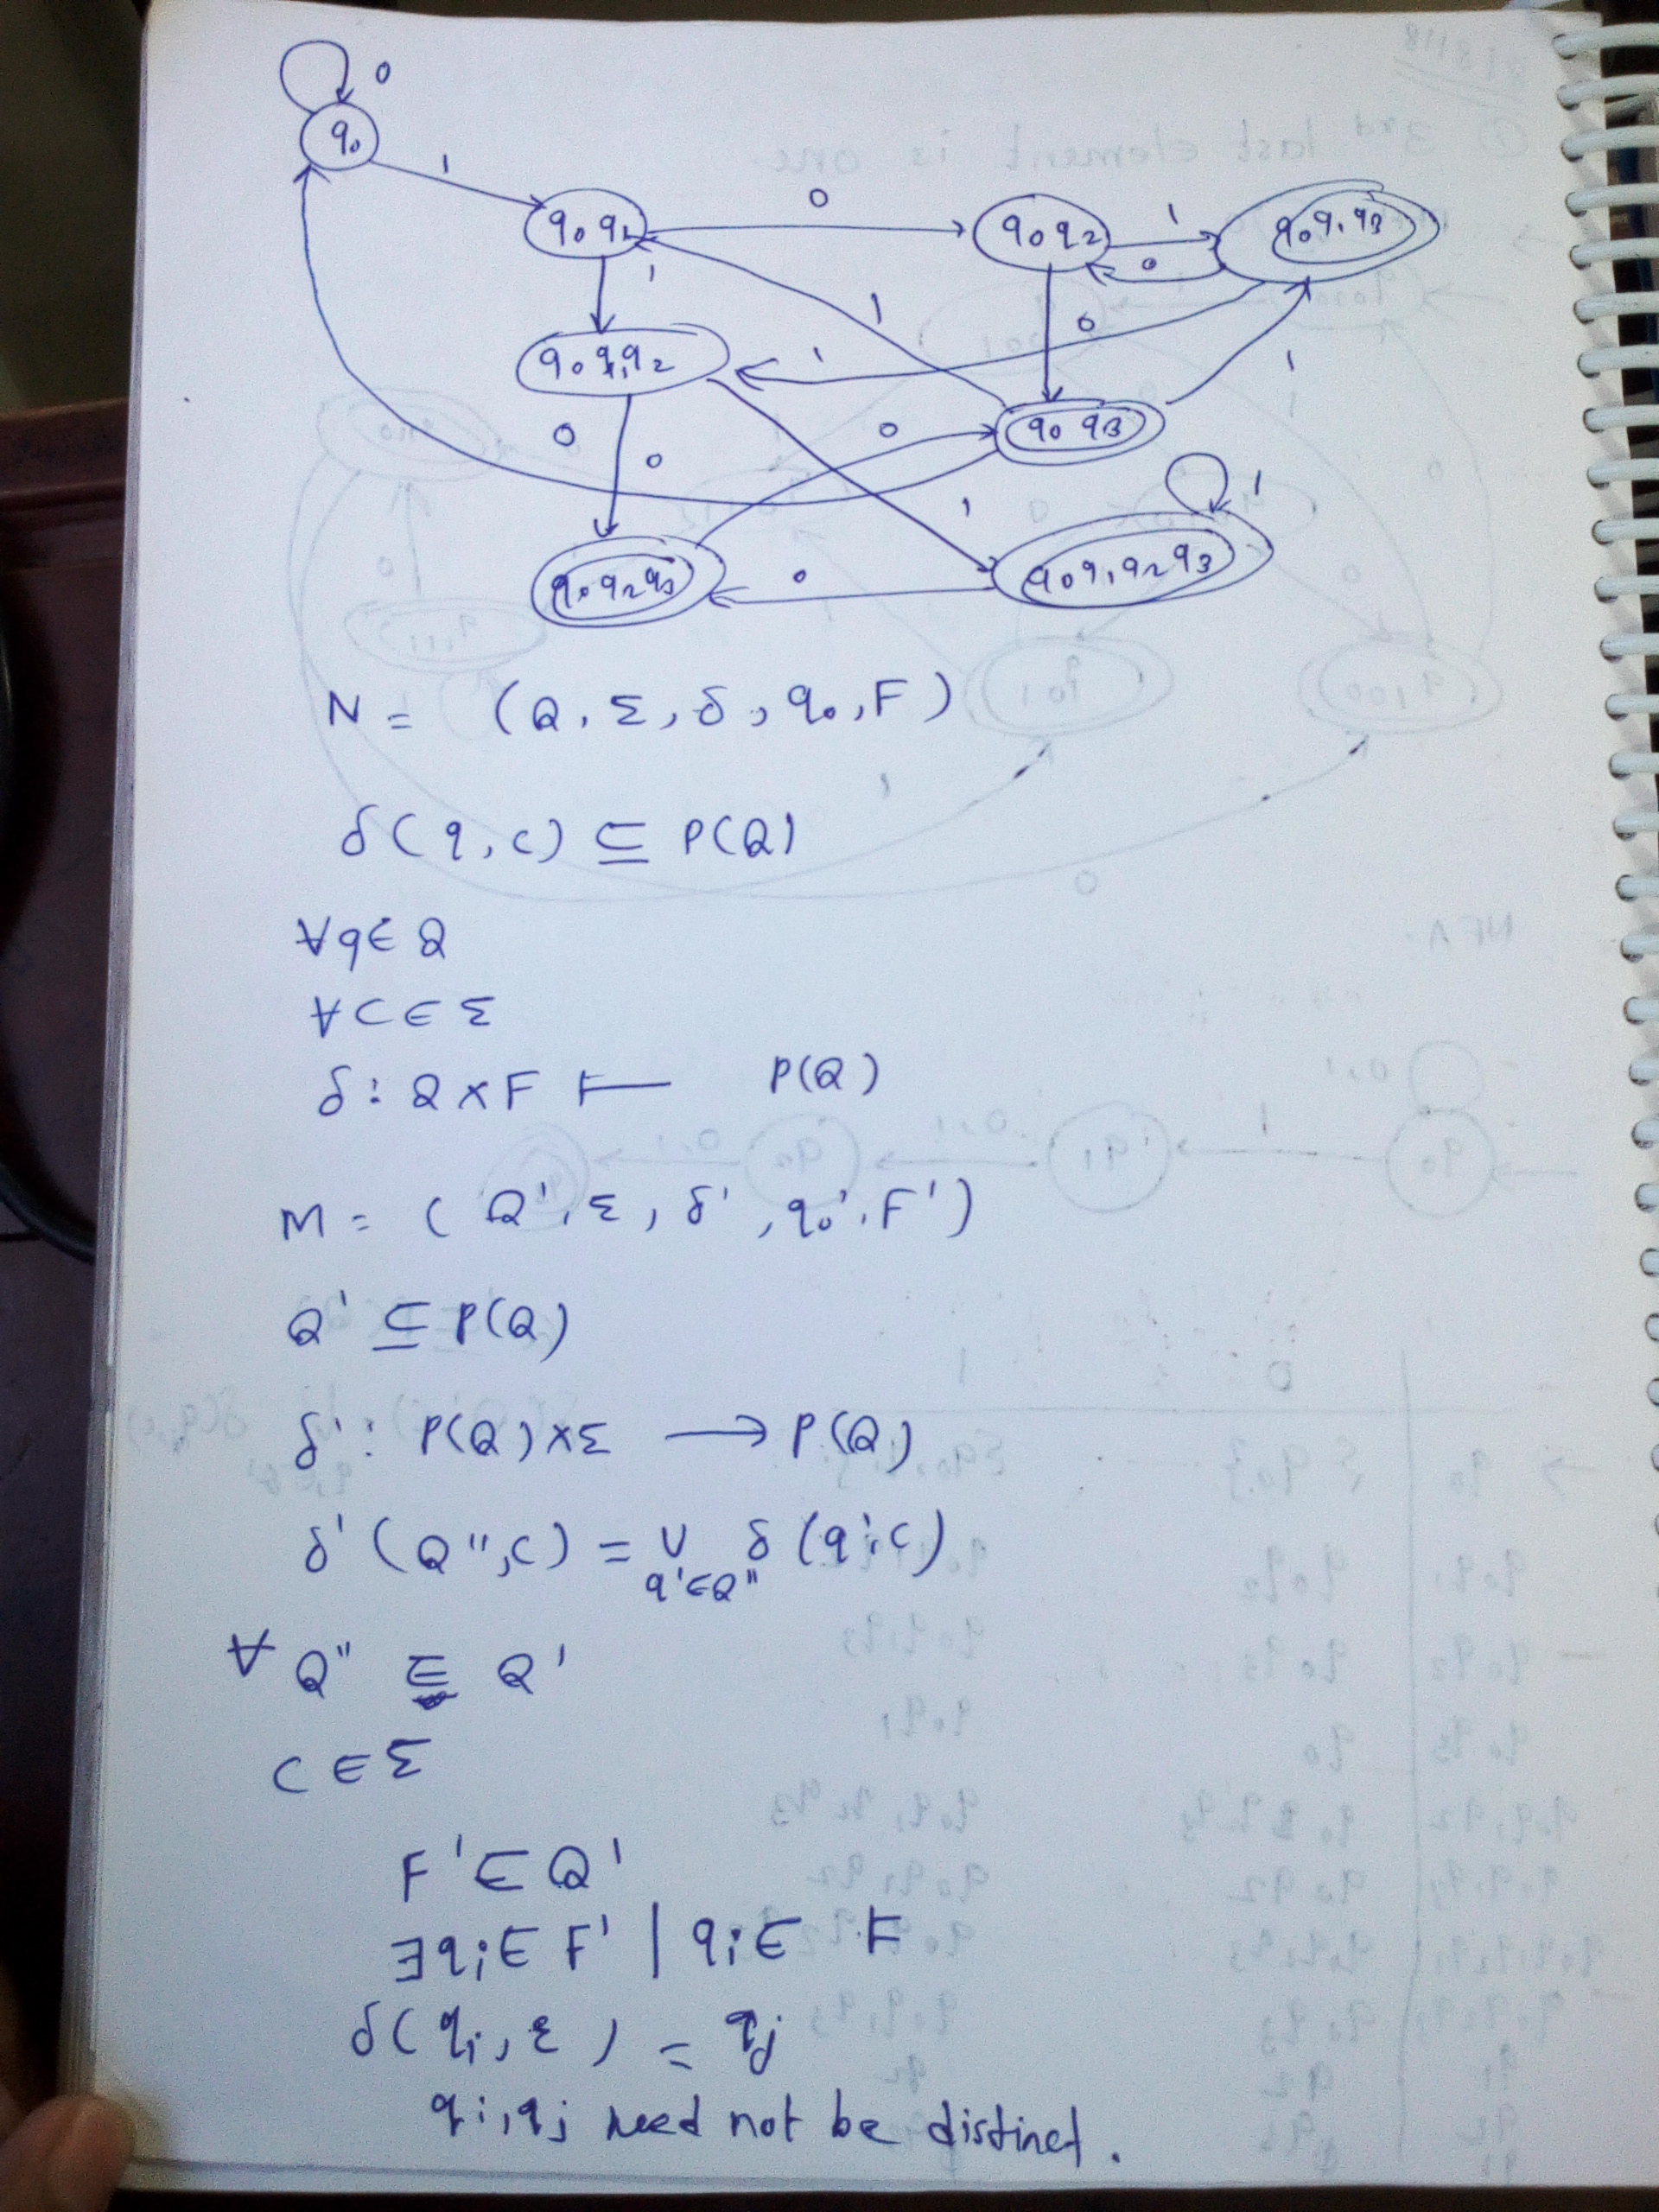 0
q₀
1
q₀ q₁
0
q₀ q₂
1
q₀ q₁ q₃
0
1
1
0
q₀ q₁ q₂
1
1
0
0
0
q₀ q₃
1
1
q₀ q₂ q₃
0
q₀ q₁ q₂ q₃
N = (Q, Σ, δ, q₀, F)
δ(q, c) ⊆ P(Q)
∀q ∈ Q
∀c ∈ Σ
δ : Q × F ⊢ P(Q)
M = (Q', Σ, δ', q₀', F')
Q' ⊆ P(Q)
δ' : P(Q) × Σ → P(Q)
δ'(Q'', c) = ∪ δ(q', c)
q' ∈ Q''
∀ Q'' ∈ Q'
c ∈ Σ
F' ∈ Q'
∃qᵢ ∈ F' | qᵢ ∈ F
δ(qᵢ, ε) = qⱼ
qᵢ, qⱼ need not be distinct.